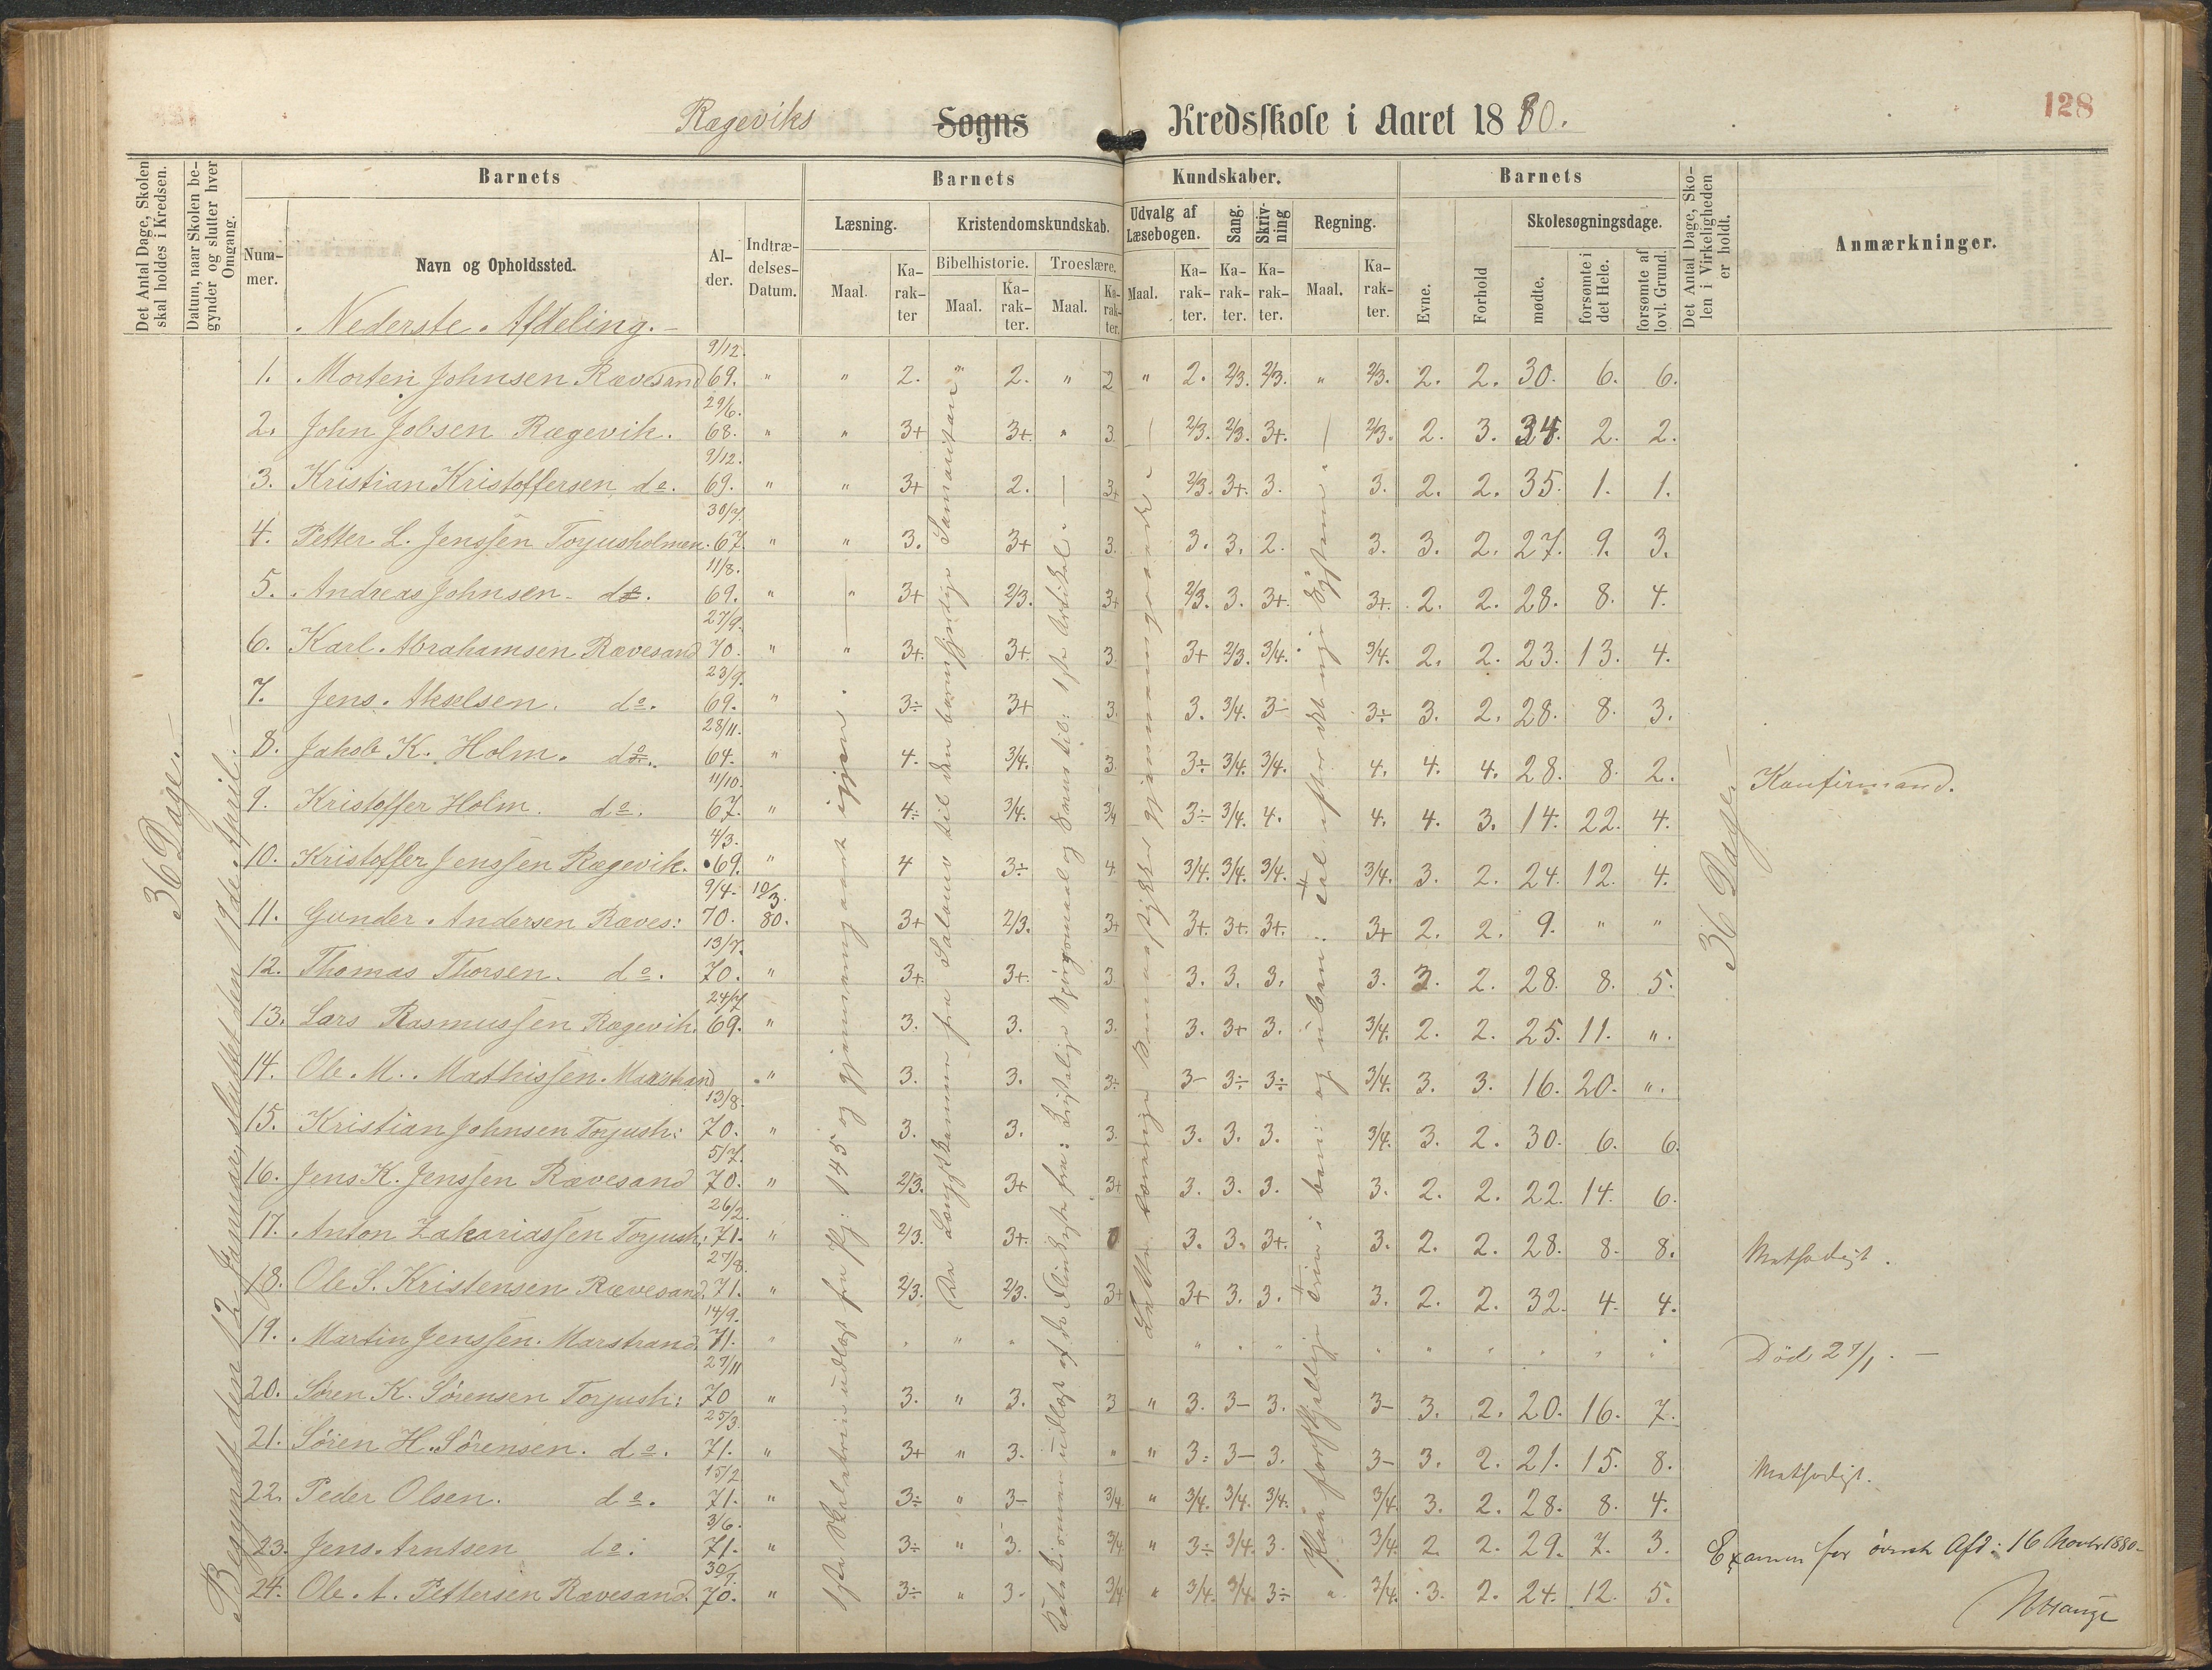 128
Rægeviks Sogns Kredsskole i Aaret 1880.
Det Antal Dage, Skolen skal holdes i Kredsen.
Datum, naar Skolen begynder og slutter hver Omgang.
Barnets
Nummer.
Navn og Opholdssted.
Alder.
Indtrædelses-Datum.
Barnets Kundskaber.
Læsning.
Maal.
Karakter
Kristendomskundskab.
Bibelhistorie.
Maal.
Karakter.
Troeslære.
Maal.
Karakter.
Udvalg af Læsebogen.
Maal.
Karakter.
Sang.
Karakter.
Skrivning
Karakter.
Regning.
Maal.
Karakter.
Barnets
Evne.
Forhold
Skolesøgningsdage.
mødte.
forsømte i det Hele.
forsømte af lovl. Grund.
Det Antal Dage, Skolen i Virkeligheden er holdt.
Anmærkninger.
Nederste Afdeling.
36 Dage.
Begyndt den 12 Januar, sluttet den 19de April.
1. Morten Johnsen Rævesand 9/12 69. " " 2. " 2. " 2 " 2. 2/3. 2/3. " 2/3. 2. 2. 30. 6. 6.
2. John Jobsen Rægevik. 29/6. 68. " " 3+ 3+. " 3. 2/3. 2/3. 3+. 2/3. 2. 3. 34. 2. 2.
3. Kristian Kristoffersen do. 9/12. 69. " " 3+ 2. 3+ 2/3. 3+. 3. 3. 2. 2. 35. 1. 1.
4. Petter L. Jenssen Torjusholmen. 30/7. 67. " " 3. 3+ 3. 3. 3. 2. 3. 3. 2. 27. 9. 3.
5. Andreas Johnsen do. 11/8. 69. " " 3+ 2/3. 3+ 2/3. 3. 3+. 3+. 2. 2. 28. 8. 4.
6. Karl Abrahamsen Rævesand 27/9. 70. " " 3+. 3+. 3 3+ 2/3. 3/4. 3/4. 2. 2. 23. 13. 4.
7. Jens Akselsen. do. 23/9. 69. " 3÷ 3+ 3. 3. 3/4. 3- 3÷ 3. 2. 28. 8. 3.
8. Jakob K. Holm. do. 28/11. 64. " 4. 3/4. 3. 3÷ 3/4. 3/4. 4. 4. 4. 28. 8. 2. Konfirmand.
9. Kristoffer Holm. do. 11/10. 67. " 4÷ 3/4. 3/4 3÷ 3/4. 4. 4. 4. 3. 14. 22. 4.
10. Kristoffer Jenssen Rægevik. 4/3. 69. " 4 3÷ 4. 3/4. 3/4. 3/4. 3/4. 3. 2. 24. 12. 4.
11. Gunder Andersen Ræves: 9/4. 70. 10/3. 80. 3+ 2/3. 3+ 3+. 3+. 3+. 3+ 2. 2. 9. " "
12. Thomas Thorsen. do. 13/7. 70. " 3+. 3+. 3 3. 3. 3. 3. 3. 2. 28. 8. 5.
13. Lars Rasmussen Rægevik. 24/7 69. " 3. 3. 3. 3. 3+ 3. 3/4. 2. 2. 25. 11. ".
14. Ole M. Mathissen Marstrand " 3. 3. 3÷ 3- 3÷ 3÷ 3/4. 3. 3. 16. 20. ".
15. Kristian Johnsen Torjush: 13/8. 70. " 3. 3. 3. 3. 3. 3. 3/4. 3. 2. 30. 6. 6.
16. Jens K. Jenssen Rævesand 5/7. 70. " 2/3. 3+ 3+ 3. 3. 3. 3. 2. 2. 22. 14. 6.
17. Anton Zakariassen Torjush: 26/2. 71. " 2/3. 3+. 3. 3. 3+. 3. 2. 2. 28. 8. 8.
18. Ole S. Kristensen Rævesand. 27/8. 71. " 2/3. 2/3. 3+ 3+ 3. 3. 3. 2. 2. 32. 4. 4.
19. Martin Jenssen. Marstrand. 14/9. 71. " Död 27/1.
20. Sören K. Sörensen Torjush: 29/11 70 " 3. " 3. 3 " 3. 3- 3. 3- 3. 2. 20. 16. 7.
21. Sören H. Sörensen. do. 25/3. 71. " 3+ " 3. " " 3. 3- 3. 3- 3. 2. 21. 15. 8.
22. Peder Olsen. do. 15/2 71. " 3÷ " 3- 3/4 " 3/4. 3/4. 3/4. 3/4. 3. 2. 28. 8. 4.
23. Jens Arntsen do. 3/6. 71. " 3÷ " 3. 3/4 " 3÷ 3/4. 3. 3/4. 2. 2. 29. 7. 3.
24. Ole A. Pettersen Rævesand. 30/9. 70. " 3÷ " 3. 3/4 " 3/4. 3/4. 3÷ " 3/4. 3. 2. 24. 12. 5.
36 Dage.
Examen for överste Afd: 16 Novbr 1880.